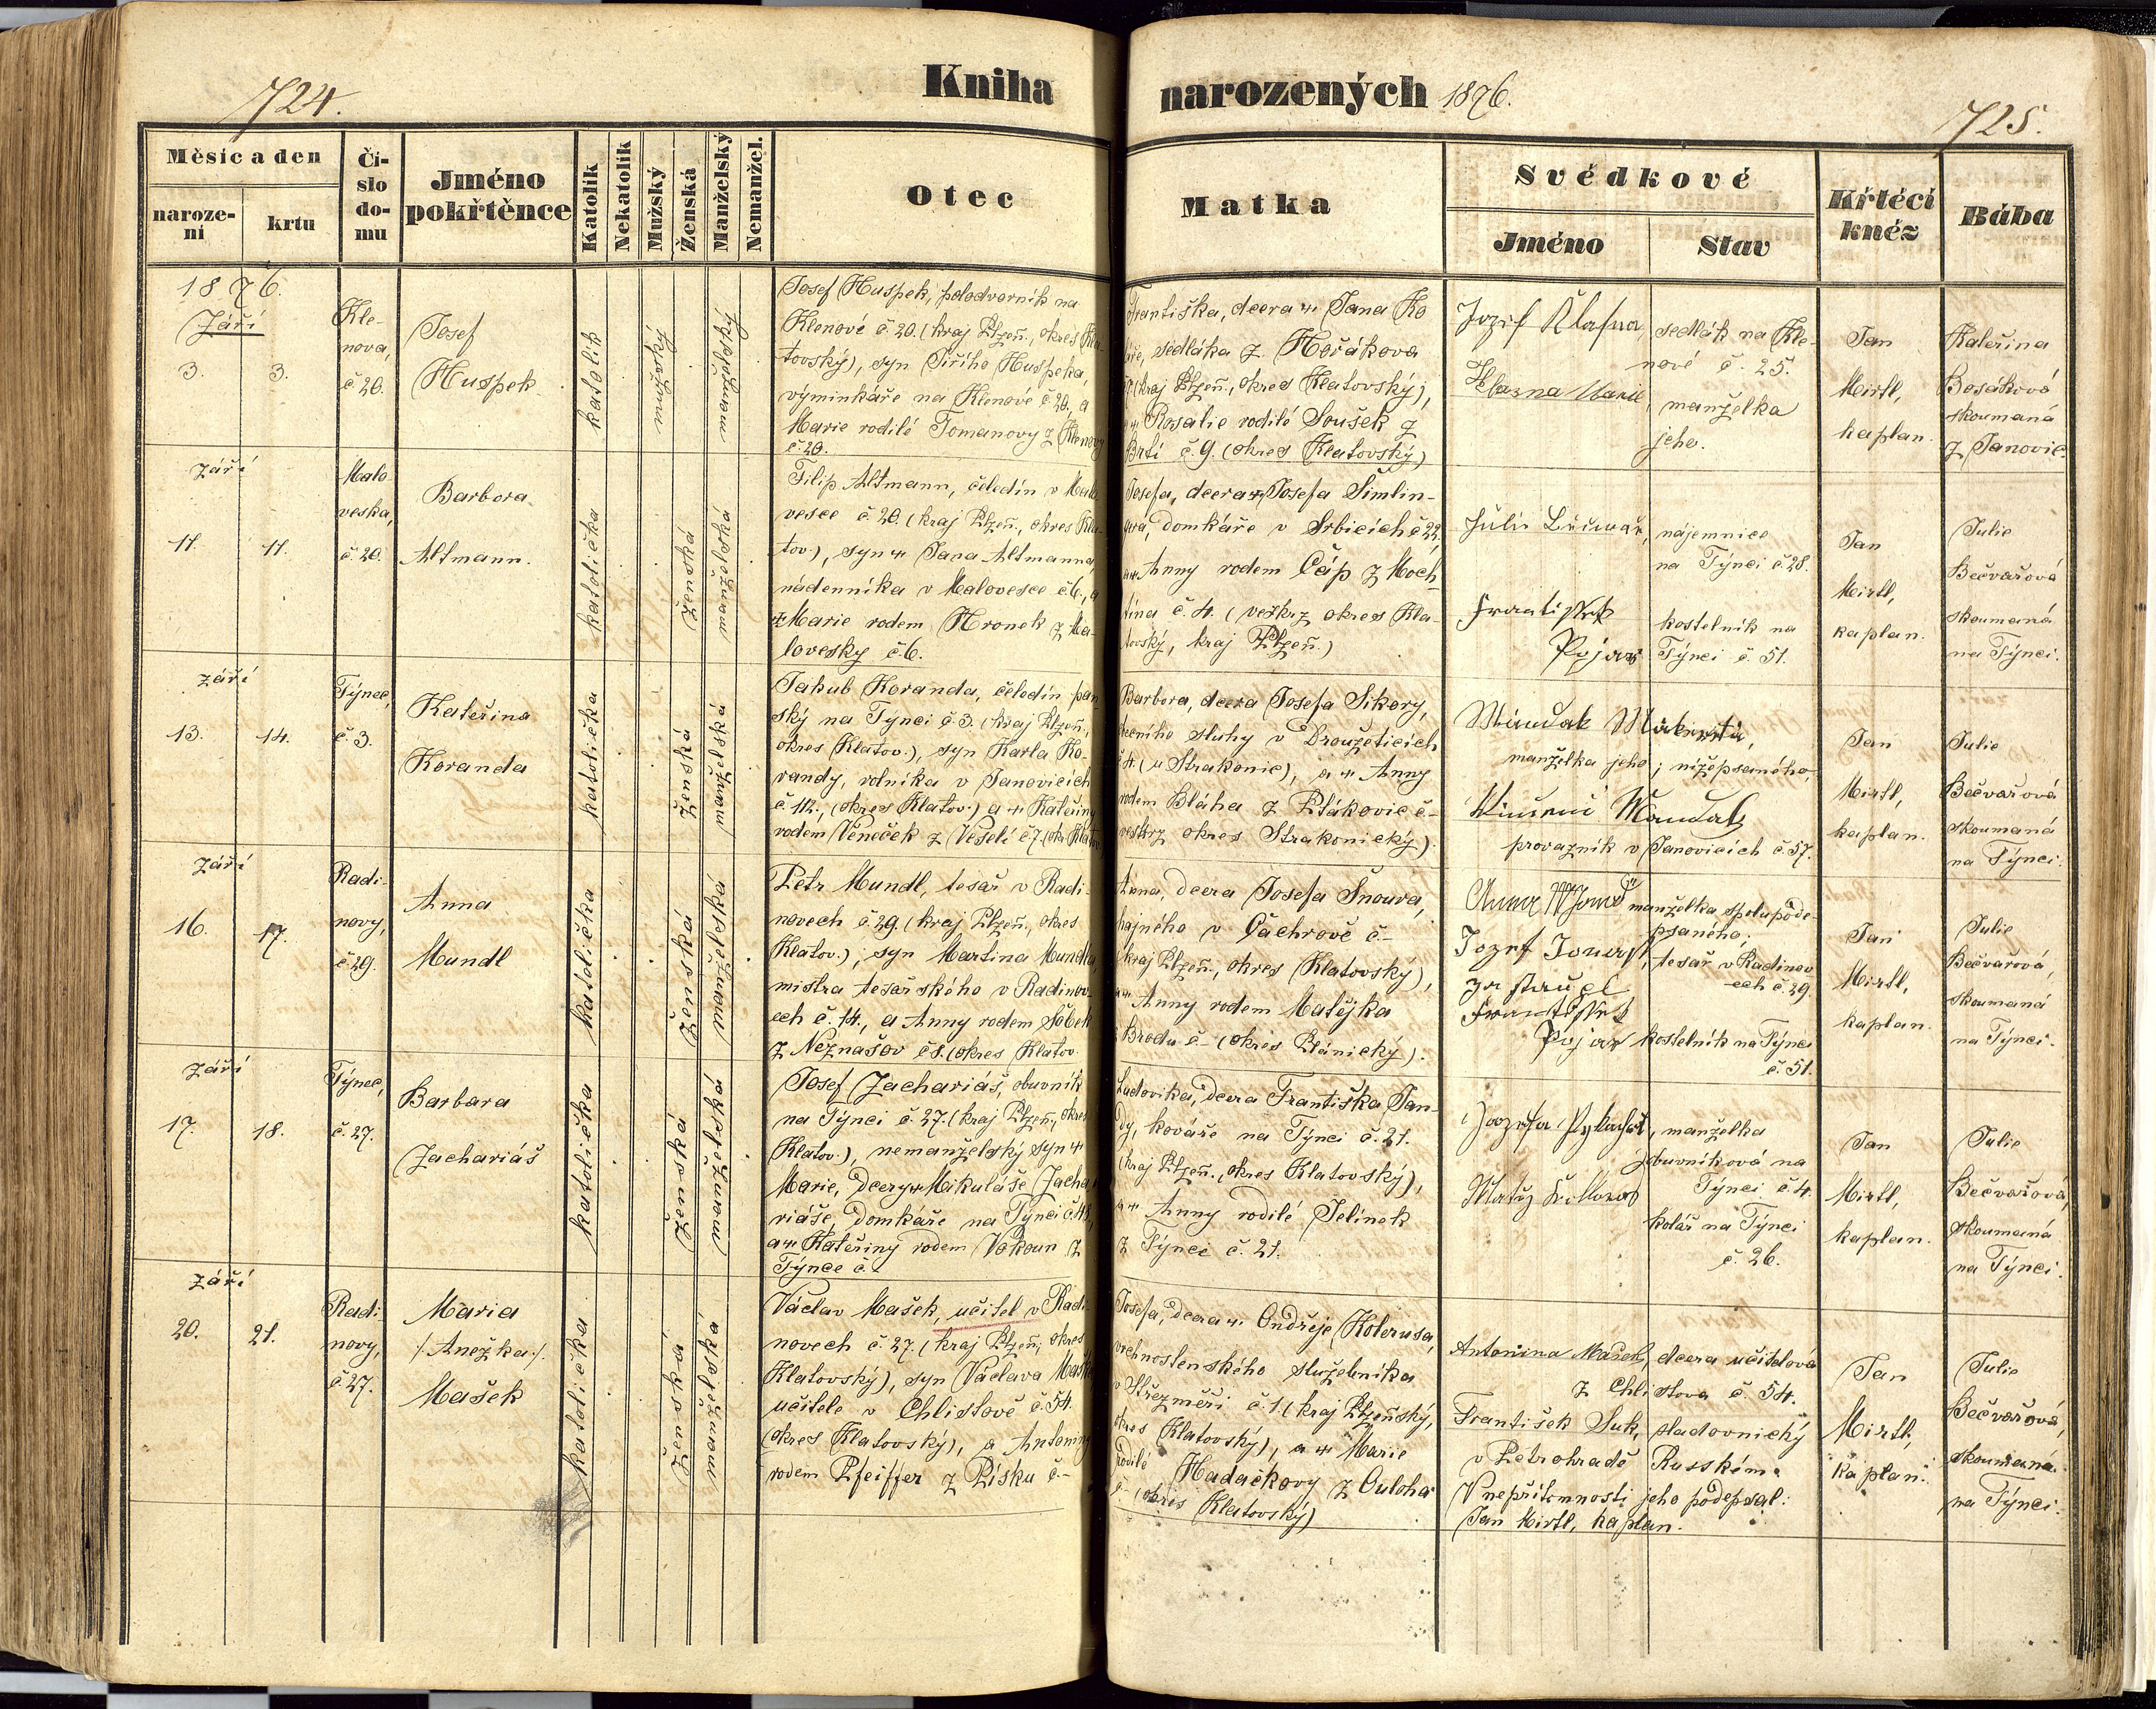 724.
Kniha
narozených 1876.
725.
Měsíc a den
naroze-
ní
krtu
Čí-
slo
do-
mu
Jméno
pokřtěnce
Katolík
Nekatolík
Mužský
Ženská
Manželský
Nemanžel.
Otec
Matka
Svědkové
Jméno
Stav
Křtěcí
kněz
Bába
1876.
Září
3.
3.
Kle-
nova,
č 20.
Josef
Huspek
katolík
mužský
manželský
Josef Huspek, polodvorník na
Klenové č. 20. (kraj Plzeň., okres Kla-
tovský), syn Jiřího Huspeka,
výminkáře na Klenové č 20., a
Marie rodilé Tomanovy z Klenovy
č. 20.
Františka, dcera Jana Ko
sedláka z Hořákova
(kraj Plzeň., okres Klatovský),
Rosalie rodilé Soušek z
Brtí č. 9. (okres Klatovský)
Jozef
sedlák na Kle-
nové č. 25.
Marie
manželka
jeho.
Jan
Mirtl,
kaplan.
Kateřina
Bosáková
skoumaná
z Janovic.
září
11.
11.
Malo
veska,
č 20.
Barbora
Altmann.
katolička
ženská
manželská
Filip Altmann, čeledín v Malo
vesce č. 20. (kraj Plzeň., okres Kla-
tov.), syn Jana Altmanna
nádenníka v Malovesce č 6., a
Marie rodem Hronek z Ma-
lovesky č. 6.
Josefa, dcera Josefa Šimlin-
domkáře v Srbicích č 22,
Anny rodem Čáp z Moch
tína č. 4. (veškrz okres Kla-
tovský, kraj Plzeň.)
nájemnice
na Týnci č. 28.
František
Pojar
kostelník na
Týnci č. 51.
Jan
Mirtl,
kaplan.
Julie
Bečvařová
skoumaná
na Týnci.
září
13.
14.
Týnec,
č. 3.
Kateřina
Koranda
katolička
ženská
manželská
Jakub Koranda, čeledín pan-
ský na Týnci č. 3. (kraj Plzeň.,
okres Klatov.), syn Karla Ko-
randy, rolníka v Janovicích
č. 112., (okres Klatov.) a Kateřiny
rodem Věneček z Veselí č 7. (okr. Klatov
Barbora, dcera Josefa Sikory,
obecního sluhy v Droužeticích
č 4 (u Strakonic), a Anny
rodem Bláha z Ptákovic č-
veskrz okres Strakonický).
manželka jeho; nížepsaného,
provazník v Janovicích č. 57.
Jan
Mirtl,
kaplan.
Julie
Bečvařová
skoumaná
na Týnci.
září
16.
17.
Radi-
novy,
č 29.
Anna
Mundl
katolička
ženská
manželská
Petr Mundl, tesař v Radi-
novech č. 29. (kraj Plzeň., okres
Klatov.), syn Martina Mundla,
mistra tesařského v Radinov-
ech č. 14., a Anny rodem Sobek
z Neznašov č 8. (okres Klatov.
Anna, dcera Josefa Šnoura,
hajného v Čachrově č.-
(kraj Plzeň., okres Klatovský),
Anny rodem Matějka
z Brodu č- (okres Plánický).
Anna
manželka spolupode-
psaného;
Jozef
tesař v Radinov-
ech č. 29.
František
Pojar kostelník na Týnci
č. 51.
Jan
Mirtl,
kaplan.
Julie
Bečvařová,
skoumaná
na Týnci.
září
17.
18.
Týnec,
č. 27.
Barbara
Zachariáš
katolička
ženská
manželská
Josef Zachariáš, obuvník
na Týnci č. 27. (kraj Plzeň., okres
Klatov.), nemanželský syn
Marie, dcery Mikuláše Zacha-
riáše, domkáře na Týnci č 48,
a Kateřiny rodem Vokoun z
Týnce č.-
Ludovika, dcera Františka Jan-
dy, kováře na Týnci č. 21.
(kraj Plzeň., okres Klatovský),
a Anny rodilé Jelínek
z Týnce č. 21.
manželka
obuvníková na
Týnci č. 4.
Matěj
kolář na Týnci
č. 26.
Jan
Mirtl,
kaplan.
Julie
Bečvařová,
skoumaná
na Týnci.
září
20.
21.
Radi-
novy,
č 27.
Maria
/: Anežka :/
Mašek
katolička
ženská
manželská
Václav Mašek, učitel v Radi-
novech č. 27. (kraj Plzeň., okres
Klatovský), syn Václava Maška
učitele v Chlistově č. 54.
(okres Klatovský), a Antoniny
rodem Pfeiffer z Písku č-
Josefa, dcera Ondřeje Kolerusa,
vrchnostenského služebníka
v Střezměři č. 1. (kraj Plzeňský,
okres Klatovský), a Marie
rodilé Hadačkovy z Ouloha
č- (okres Klatovský)
Antonina Mašek, dcera učitelova
z Chlistova č. 54.
František Suk, sladovnický
v Petrohradě Rusském.
V nepřítomnosti jeho podepsal:
Jan Mirtl, kaplan.
Jan
Mirtl,
kaplan.
Julie
Bečvařová,
skoumaná
na Týnci.